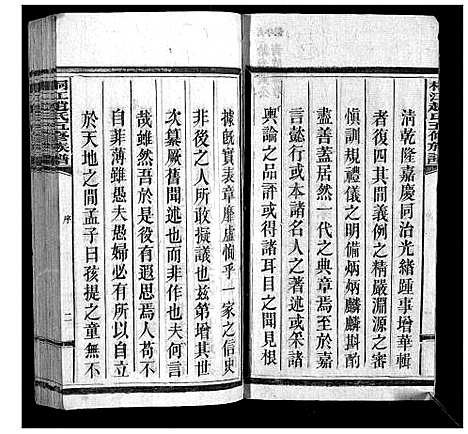 清乾隆嘉慶同治光緒踵事增華輯
者復四其間義例之精嚴淵源之審
慎訓規禮儀之明備炳炳麟麟斟酌
盡善蓋居然一代之典章焉至於嘉
言懿行或本諸名人之著述或采諸
輿論之品評或得諸耳目之聞見根
據既實表章靡虛恂乎一家之信史
非後之人所敢擬議也茲第增其世
次纂厥舊聞述也而非作也夫何言
哉雖然吾於是役有遐思焉人苟不
自菲薄雖愚夫愚婦必有所以自立
於天地之間孟子曰孩提之童無不
桐江趙氏五修族譜
序
二